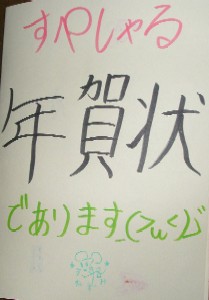 すやしゃる
年賀状
であります(>ω<)ゞ